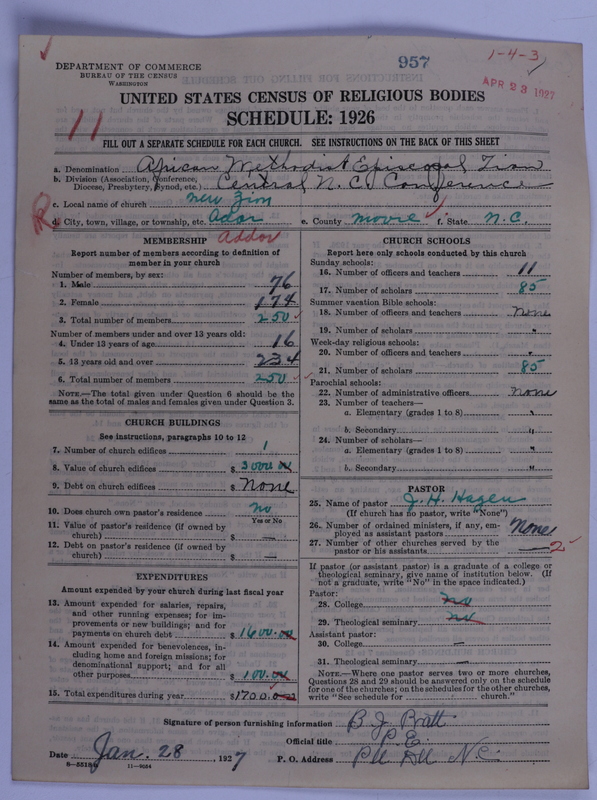 957
1-4-3
APR 23 1927
DEPARTMENT OF COMMERCE
BUREAU OF THE CENSUS
WASHINGTON
UNITED STATES CENSUS OF RELIGIOUS BODIES
SCHEDULE: 1926
11
FILL OUT A SEPARATE SCHEDULE FOR EACH CHURCH. SEE INSTRUCTIONS ON THE BACK OF THIS SHEET
a. Denomination African Methodist Episcopal Zion
b. Division (Association, Conference, Diocese, Presbytery, Synod, etc.) Central N.C. Conference
c. Local name of church New Zion
d. City, town, village, or township, etc. Ador e. County Moore f. State N.C.
Addor
MEMBERSHIP
Report number of members according to definition of member in your church
Number of members, by sex:
1. Male 76
2. Female 174
3. Total number of members 250
Number of members under and over 13 years old:
4. Under 13 years of age 16
5. 13 years old and over 234
6. Total number of members 250
NOTE.—The total given under Question 6 should be the same as the total of males and females given under Question 3.
CHURCH BUILDINGS
See instructions, paragraphs 10 to 12
7. Number of church edifices 1
8. Value of church edifices $ 3000.00
9. Debt on church edifices $ None
10. Does church own pastor's residence No
Yes or No
11. Value of pastor's residence (if owned by church) $ —
12. Debt on pastor's residence (if owned by church) $ —
EXPENDITURES
Amount expended by your church during last fiscal year
13. Amount expended for salaries, repairs, and other running expenses; for improvements or new buildings; and for payments on church debt $ 1600.00
14. Amount expended for benevolences, including home and foreign missions; for denominational support; and for all other purposes $ 100.00
15. Total expenditures during year $ 1700.00
CHURCH SCHOOLS
Report here only schools conducted by this church
Sunday schools:
16. Number of officers and teachers 11
17. Number of scholars 85
Summer vacation Bible schools:
18. Number of officers and teachers None
19. Number of scholars "
Week-day religious schools:
20. Number of officers and teachers "
21. Number of scholars 85
Parochial schools:
22. Number of administrative officers None
23. Number of teachers—
a. Elementary (grades 1 to 8) "
b. Secondary "
24. Number of scholars—
a. Elementary (grades 1 to 8) "
b. Secondary "
PASTOR
25. Name of pastor J. H. Hagen
(If church has no pastor, write "None")
26. Number of ordained ministers, if any, employed as assistant pastors None
27. Number of other churches served by the pastor or his assistants — 2
If pastor (or assistant pastor) is a graduate of a college or theological seminary, give name of institution below. (If not a graduate, write "No" in the space indicated.)
Pastor:
28. College No
29. Theological seminary No
Assistant pastor:
30. College —
31. Theological seminary —
NOTE.—Where one pastor serves two or more churches, Questions 28 and 29 should be answered only on the schedule for one of the churches; on the schedules for the other churches, write "See schedule for church."
Signature of person furnishing information B J
Official title P.E.
Date Jan. 28, 1927 P. O. Address N.C.
8-5518b 11-9024